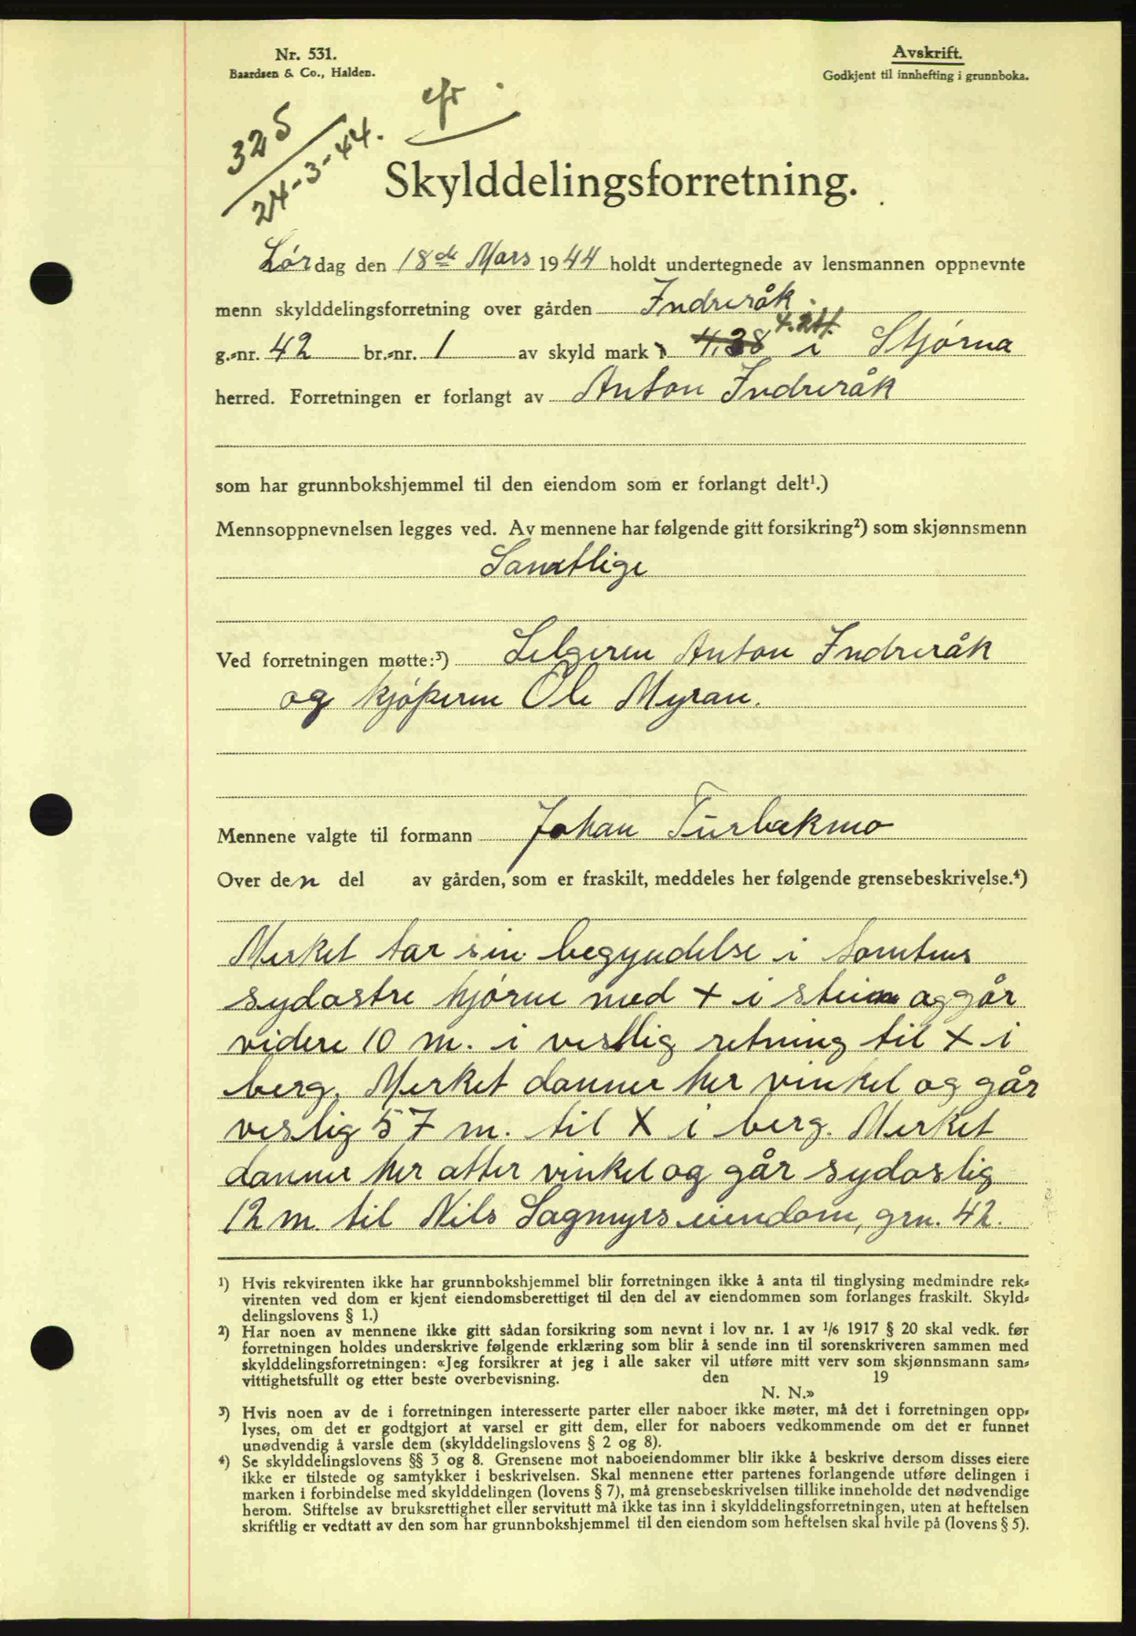 Nr. 531.
Baardsen & Co., Halden.
Avskrift.
Godkjent til innhefting i grunnboka.
325
24-3-44.
Skylddelingsforretning.
Lørdag den 18de Mars 1944 holdt undertegnede av lensmannen oppnevnte
menn skylddelingsforretning over gården Indreråk
g.-nr. 42 br.-nr. 1 av skyld mark 4.38 4.24. i Stjørna
herred. Forretningen er forlangt av Anton Indreråk
som har grunnbokshjemmel til den eiendom som er forlangt delt¹.)
Mennsoppnevnelsen legges ved. Av mennene har følgende gitt forsikring²) som skjønnsmenn
Samtlige
Ved forretningen møtte:³) Selgeren Anton Indreråk
og kjøperen Ole Myran.
Mennene valgte til formann Johan Turbekmo
Over den del av gården, som er fraskilt, meddeles her følgende grensebeskrivelse.⁴)
Merket tar sin begyndelse i tomtens
sydøstre hjørne med + i stein og går
videre 10 m. i vestlig retning til + i
berg. Merket danner her vinkel og går
veslig 57 m. til X i berg. Merket
danner her atter vinkel og går sydøslig
12 m. til Nils Sagmyrs eiendom, grn. 42.
¹) Hvis rekvirenten ikke har grunnbokshjemmel blir forretningen ikke å anta til tinglysing medmindre rek-
virenten ved dom er kjent eiendomsberettiget til den del av eiendommen som forlanges fraskilt. Skyld-
delingslovens § 1.)
²) Har noen av mennene ikke gitt sådan forsikring som nevnt i lov nr. 1 av 1/6 1917 § 20 skal vedk. før
forretningen holdes underskrive følgende erklæring som blir å sende inn til sorenskriveren sammen med
skylddelingsforretningen: «Jeg forsikrer at jeg i alle saker vil utføre mitt verv som skjønnsmann sam-
vittighetsfullt og etter beste overbevisning. den 19
N. N.»
³) Hvis noen av de i forretningen interesserte parter eller naboer ikke møter, må det i forretningen opp-
lyses, om det er godtgjort at varsel er gitt dem, eller for naboers vedkommende om det er funnet
unødvendig å varsle dem (skylddelingslovens § 2 og 8).
⁴) Se skylddelingslovens §§ 3 og 8. Grensene mot naboeiendommer blir ikke å beskrive dersom disses eiere
ikke er tilstede og samtykker i beskrivelsen. Skal mennene etter partenes forlangende utføre delingen i
marken i forbindelse med skylddelingen (lovens § 7), må grensebeskrivelsen tillike inneholde det nødvendige
herom. Stiftelse av bruksrettighet eller servitutt må ikke tas inn i skylddelingsforretningen, uten at heftelsen
skriftlig er vedtatt av den som har grunnbokshjemmel til den eiendom som heftelsen skal hvile på (lovens § 5).